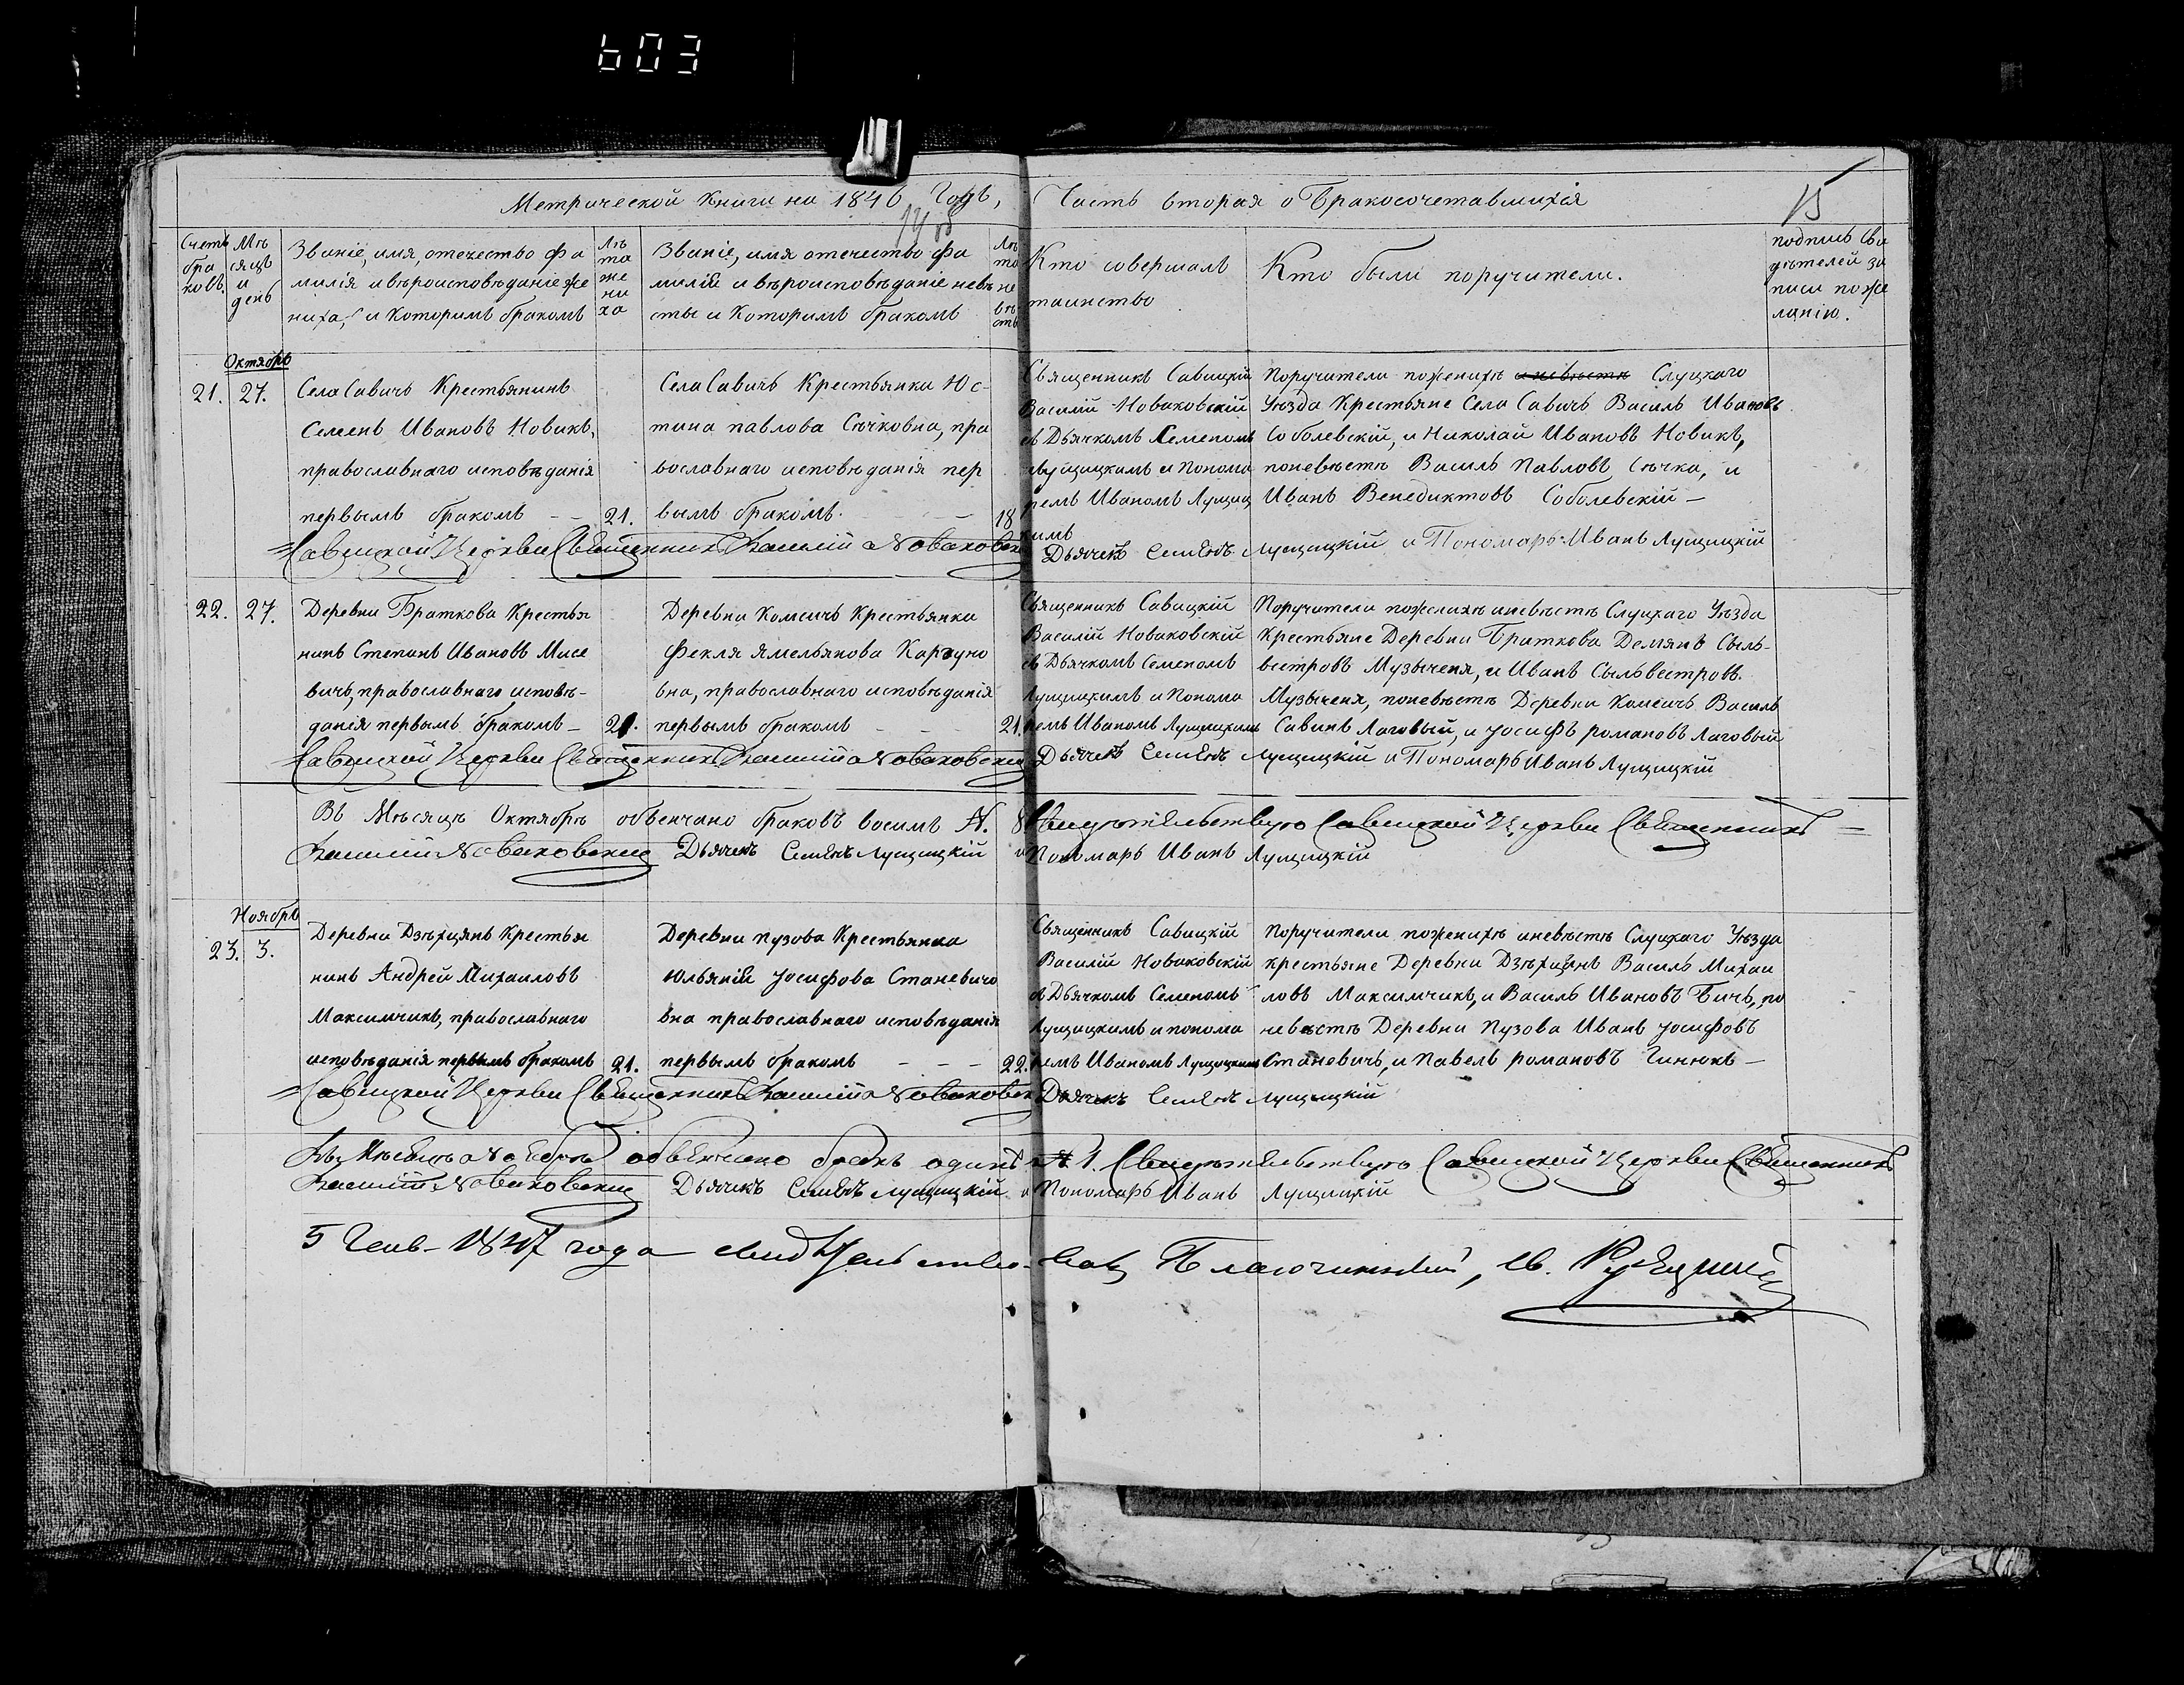 603
Метрической Книги на 1846 Годъ, Часть вторая о Бракосочетавшихся
15
Счетъ бра ковъ.
Мѣ сяцъ и день
Званіе, имя, отечество фа
милія и вѣроисповѣданіе же
ниха, и Которимъ бракомъ
Лѣ та же ни ха
Званіе, имя отечество фа
милія и вѣроисповѣданіе невѣ
сты и Которимъ бракомъ
Лѣ та не вѣ сты
Кто совершалъ
таинство
Кто были поручители.
подпись сви
дѣтелей за
писи по же
ланію.
Октябрь
21. 27.
Села Савичь Крестьянинъ
Семенъ Ивановъ Новикъ,
православнаго исповѣданія
первымъ бракомъ – – 21.
Села Савичь Крестьянка Юс-
тина павлова Сѣчковна, пра
вославнаго исповѣданія пер
вымъ бракомъ. – 18
Священникъ Савицкій
Василій Новаковскій
съ Дьячкомъ Семеномъ
Лущицкимъ и Понома
ремъ Иваномъ Лущиц
кимъ
Поручители по женихѣ и невѣстѣ Слуцкаго
Уѣзда Крестьяне Села Савичь Василь Ивановъ
Соболевскій, и Николай Ивановъ Новикъ,
по невѣстѣ Василь Павловъ Сѣчка, и
Иванъ Венедиктовъ Соболевскій –
Савицкой Церкви Священникъ Василій Новаковскій
Дьячекъ Семенъ Лущицкій и Пономарь Иванъ Лущицкій
22. 27.
Деревни Браткова Крестья
нинъ Степанъ Ивановъ Мисе
вичь, православнаго исповѣ-
данія первымъ бракомъ – 21.
Деревни Комсичь Крестьянка
Фекля Ямельянова Карзуно
вна, православнаго исповѣданія
первымъ бракомъ – – – 21.
Священникъ Савицкій
Василій Новаковскій
съ Дьячкомъ Семеномъ
Лущицкимъ и Понома
ремъ Иваномъ Лущицкимъ
Поручители по женихѣ и невѣстѣ Слуцкаго Уѣзда
Крестьяне Деревни Браткова Демянъ Сыль-
вестровъ Музыченя, и Иванъ Сыльвестровъ
Музыченя, по невѣстѣ Деревни Комсичь Василь
Савинъ Лаговый, и Іосифъ романовъ Лаговый
Савицкой Церкви Священникъ Василій Новаковскій
Дьячекъ Семенъ Лущицкій и Пономарь Иванъ Лущицкій
Въ Мѣсяцѣ Октябрѣ обвенчано браковъ восимъ N. 8 Свидѣтельствую Савицкой Церкви Священникъ
Василій Новаковскій Дьячекъ Семенъ Лущицкій и Пономарь Иванъ Лущицкій
Ноябрь
23. 3.
Деревни Дзѣхцянъ Крестья
нинъ Андрей Михаиловъ
Максимчикъ, православнаго
исповѣданія первымъ бракомъ 21.
Деревни пузова Крестьянка
Юльянія Іосифова Станевичо
вна православнаго исповѣданія
первымъ бракомъ – – – 22.
Священникъ Савицкій
Василій Новаковскій
съ Дьячкомъ Семеномъ
Лущицкимъ и понома
ремъ Иваномъ Лущицкимъ
Поручители по женихѣ и невѣстѣ Слуцкаго Уѣзда
крестьяне Деревни Дзѣхцянъ Василь Михаи
ловъ Максимчикъ, и Василь Ивановъ Бичь, по
невѣстѣ Деревни Пузова Иванъ Іосифовъ
Станевичь, и Павелъ романовъ Чинюкъ –
Савицкой Церкви Священникъ Василій Новаковскій
Дьячекъ Семенъ Лущицкій
Въ Мѣсяцѣ Ноябрѣ обвенчано бракъ одинъ N 1. Свидѣтельствую Савицкой Церкви Священникъ
Василій Новаковскій Дьячекъ Семенъ Лущицкій и Пономарь Иванъ Лущицкій
5 Генв. 1847 года свидѣтельствовалъ Благочинный, св.